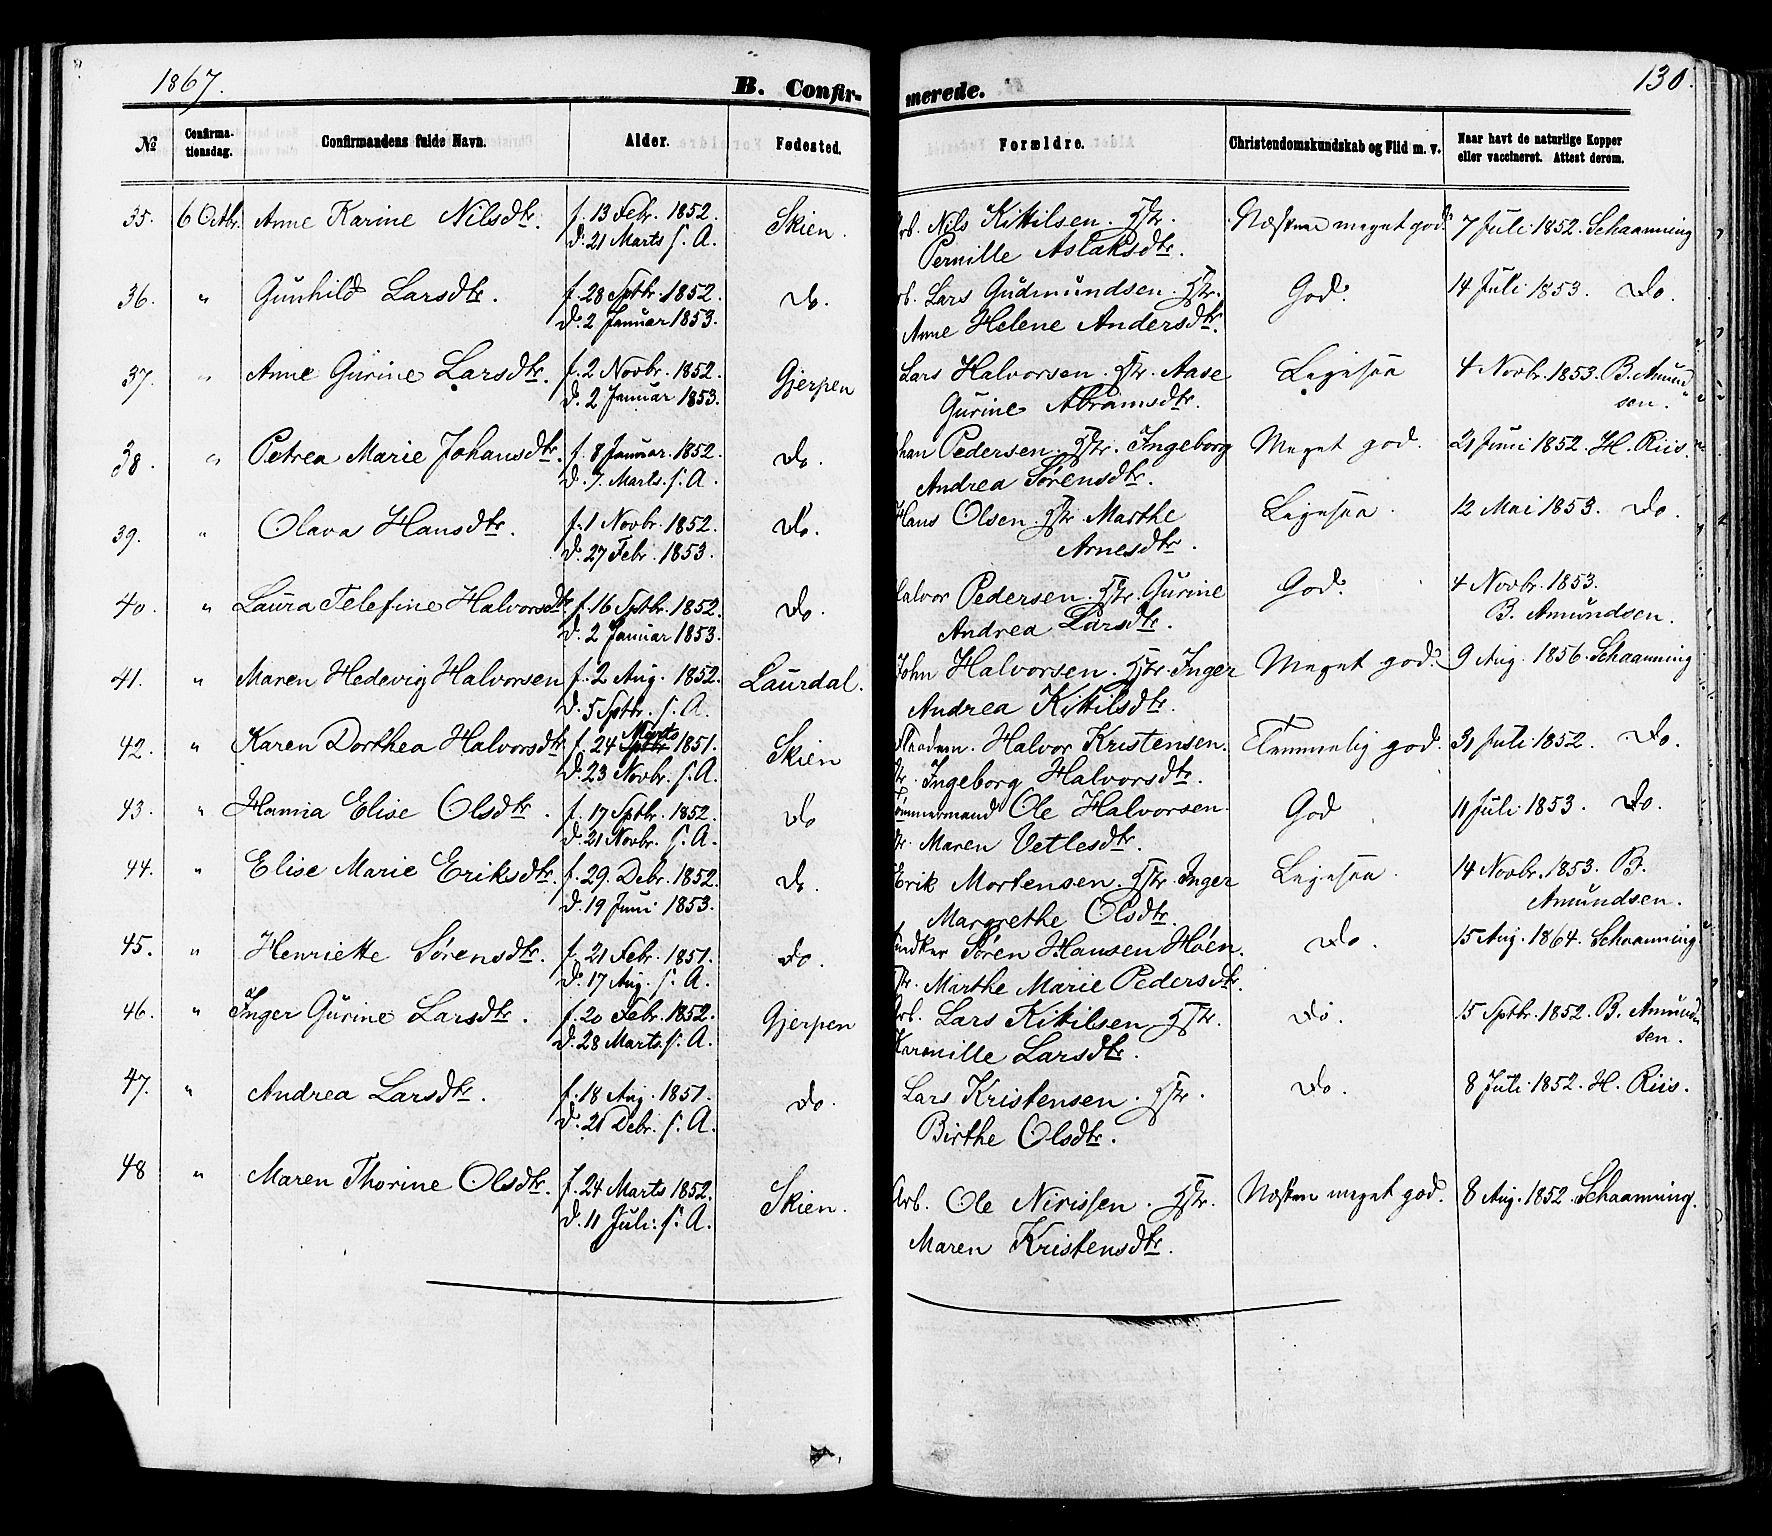 1867.
B. Confir-
merede.
130.
№
Confirma-
tionsdag.
Confirmandens fulde Navn.
Alder.
Fødested.
Forældre.
Christendomskundskab og Flid m. v.
Naar havt de naturlige Kopper
eller vaccineret. Attest derom.
35. 6 Octbr. Anne Karine Nilsdtr. f. 13 Febr. 1852. Skien. Arb. Nils Kittilsen. Hstr. Næsten meget god. 7 Juli 1852. Schaanning
d. 21 Marts s. A. Pernille Aslaksdtr.
36. " Gunhild Larsdtr. f. 28 Sptbr. 1852. Do. Arb. Lars Gudmundsen. Hstr. God. 14 Juli 1853. Do.
d. 2 Januar 1853. Anne Helene Andersdtr.
37. " Anne Gurine Larsdtr. f. 2 Novbr. 1852. Gjerpen Lars Halvorsen. Hstr. Aase Ligesaa 4 Novbr. 1853. B. Amund
d. 2 Januar 1853. Gurine Abramsdtr. sen.
38. " Petrea Marie Johansdtr. f. 8 Januar 1852. Do. Johan Pedersen. Hstr. Ingeborg Meget god. 21 Juni 1852. H. Riis.
d. 7. Marts. s. A. Andrea Sørensdtr.
39. " Olava Hansdtr. f. 1 Novbr. 1852. Do. Hans Olsen. Hstr Marthe Ligesaa. 12 Mai 1853. Do.
d. 27 Febr. 1853. Arnesdtr.
40. " Laura Telefine Halvorsdtr f. 16 Sptbr. 1852. Do. Halvor Pedersen. Hstr. Gurine God. 4 Novbr. 1853.
d. 2 Januar 1853. Andrea Larsdtr. B. Amundsen.
41. " Maren Hedevig Halvorsen f. 2 Aug. 1852. Laurdal. John Halvorsen. Hstr. Inger Meget god. 9 Aug. 1856. Schaanning
d. 5 Sptbr. s. A. Andrea Kittilsdtr.
Marts
42. " Karen Dorthea Halvorsdtr f. 24 Sptbr 1851. Skien Halvor Kristensen. Temmelig god. 31 Juli 1852. Do.
d. 23 Novbr. s. A. Ingeborg Halvorsdtr.
43. " Hanna Elise Olsdtr. f. 17 Sptbr. 1852. Do Tømmermand Ole Halvorsen. God. 11 Juli 1853. Do.
d. 21 Novbr. s. A. Maren Vetlesdtr.
44. " Elise Marie Eriksdtr. f. 29. Debr. 1852. Do. Erik Mortensen. Hstr. Inger Ligesaa. 14 Novbr. 1853. B.
d. 19 Juni 1853. Margrethe Olsdtr. Amundsen.
45. " Henriette Sørensdtr. f. 21 Febr. 1851. Do. Søren Hansen Høen. Do. 15 Aug. 1864. Schaanning
d. 17 Aug. s. A. Hstr. Marthe Marie Pedersdtr.
46. " Inger Gurine Larsdtr. f. 20 Febr. 1852. Gjerpen Arb. Lars Kittilsen Hstr. Do. 15 Sptbr. 1852. B. Amund
d. 28 Marts. s. A. Karenille Larsdtr. sen.
47. " Andrea Larsdtr. f. 18 Aug. 1851. Do. Lars Kristensen. Hstr. Do. 8 Juli 1852. H. Riis.
d. 21 Debr. s. A. Birthe Olsdtr.
48 " Maren Thorine Olsdtr. f. 24 Marts 1852. Skien. Arb. Ole Nirissen. Hstr. Næsten meget god. 8 Aug. 1852. Schaanning.
d. 11 Juli. s. A. Maren Kristensdtr.